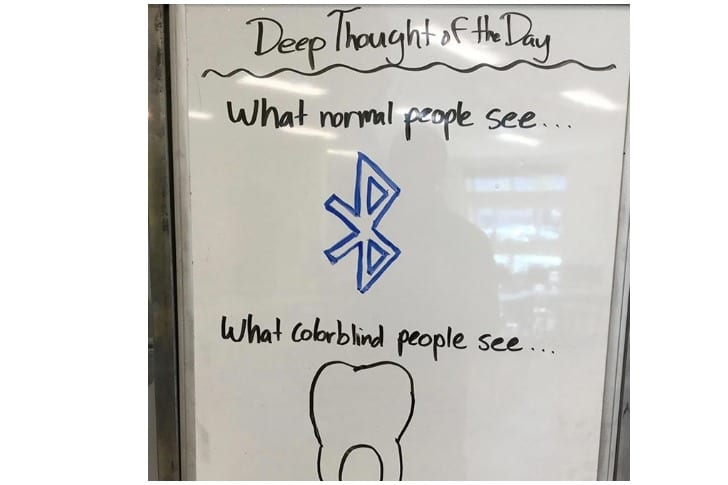 Deep Thought of the Day
What normal people see...
What Colorblind people see...